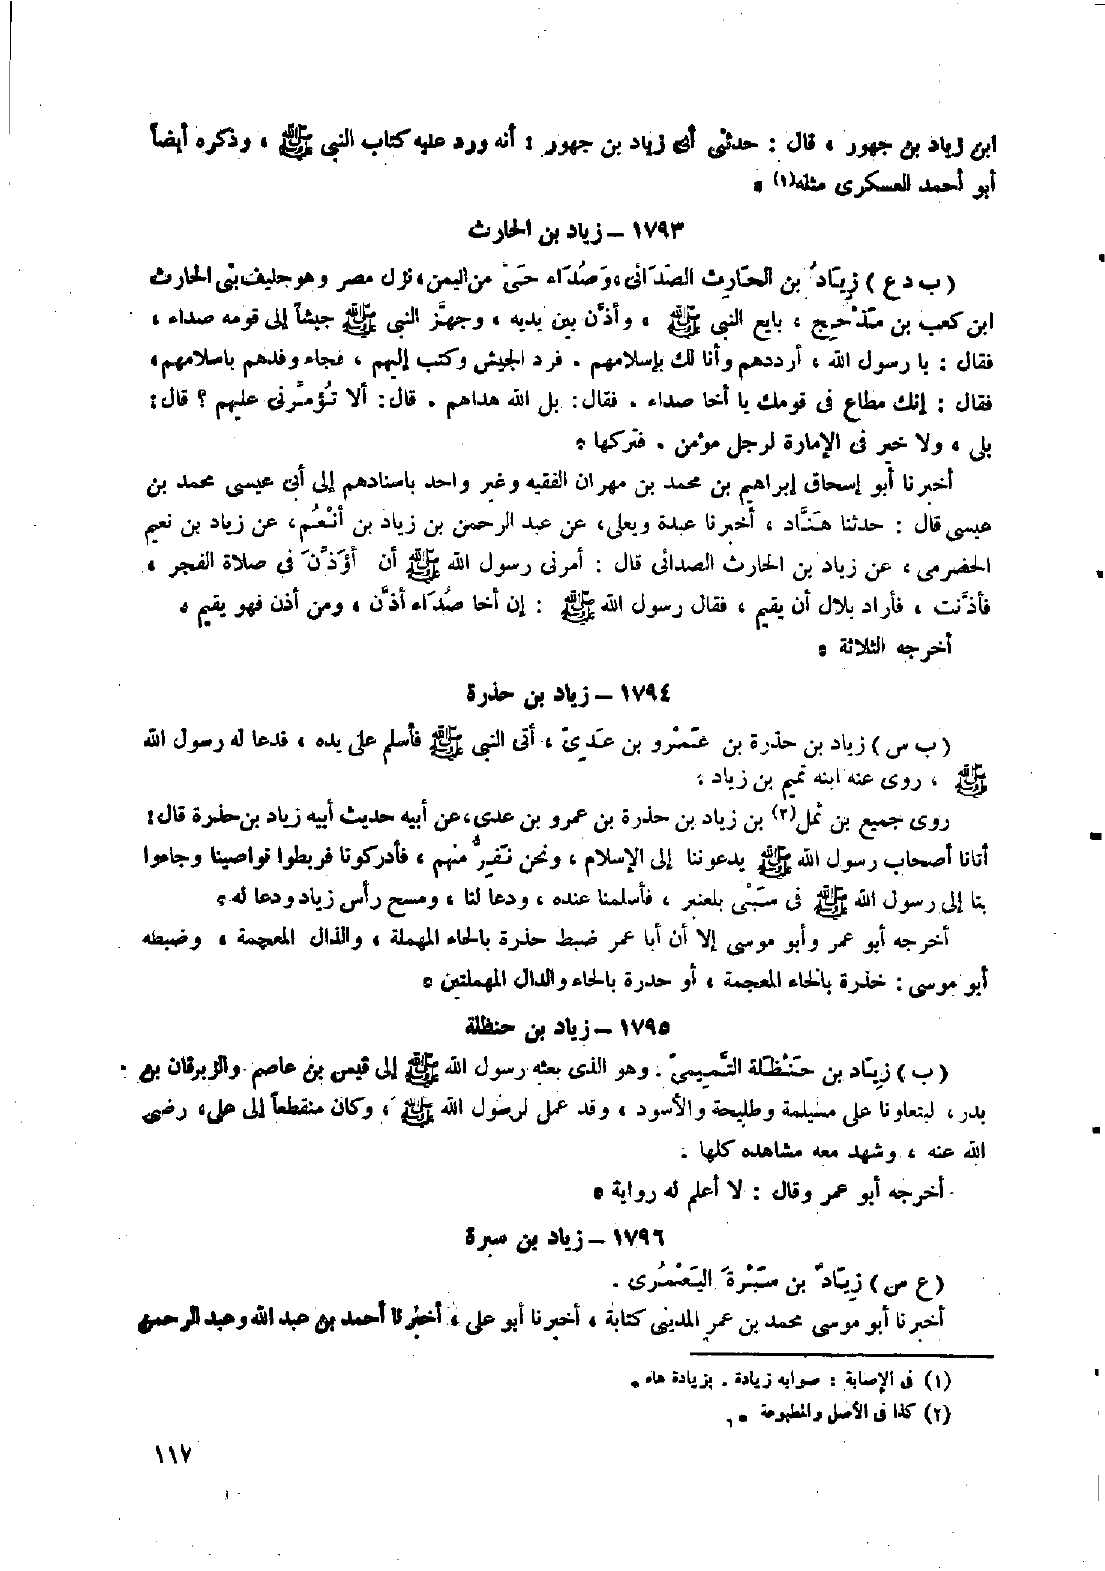 ابن زياد بن جهور ، قال : حدثني أبى زياد بن جهور : أنه ورد عليه كتاب النبي ﷺ ، وذكره أيضاً
أبو أحمد العسكرى مثله(١) .
١٧٩٣ – زياد بن الحارث
( ب د ع ) زِيَادُ بن الحَارِث الصُّدَائى، وَصُدَاء حَىّ من اليمن، نزل مصر وهو حليف بنى الحارث
ابن كعب بن مَذْحِج ، بايع النبي ﷺ ، وأذَّن بين يديه ، وجهَّز النبي ﷺ جيشاً إلى قومه صداء ،
فقال : يا رسول الله ، أرددهم وأنا لك بإسلامهم . فرد الجيش وكتب إليهم ، فجاء وفدهم باسلامهم،
فقال : إنك مطاع فى قومك يا أخا صداء . فقال: بل الله هداهم . قال: ألا تُؤمِّرنى عليهم ؟ قال:
بلى ، ولا خير فى الإمارة لرجل مؤمن . فتركها .
أخبرنا أبو إسحاق إبراهيم بن محمد بن مهران الفقيه وغير واحد باسنادهم إلى أبى عيسى محمد بن
عيسى قال : حدثنا هَنَّاد ، أخبرنا عبدة ويعلى، عن عبد الرحمن بن زياد بن أنْعُم، عن زياد بن نعيم
الحضرمى ، عن زياد بن الحارث الصدائى قال : أمرنى رسول الله ﷺ أن أؤَذِّنَ فى صلاة الفجر ،
فأذَّنت ، فأراد بلال أن يقيم ، فقال رسول الله ﷺ : إن أخا صُدَاء أذَّن ، ومن أذن فهو يقيم .
أخرجه الثلاثة .
١٧٩٤ – زياد بن حذرة
( ب س ) زياد بن حذرة بن عَمْرو بن عَدِىّ ، أتى النبي ﷺ فأسلم على يده ، فدعا له رسول الله
ﷺ ، روى عنه ابنه تميم بن زياد .
روى جميع بن ثمل(٢) بن زياد بن حذرة بن عمرو بن عدى، عن أبيه حديث أبيه زياد بن حذرة قال:
أتانا أصحاب رسول الله ﷺ يدعوننا إلى الإسلام ، ونحن نَفِرُّ منهم ، فأدركونا فربطوا نواصينا وجاءوا
بنا إلى رسول الله ﷺ فى سَبْى بلعنبر ، فأسلمنا عنده ، ودعا لنا ، ومسح رأس زياد ودعا له .
أخرجه أبو عمر وأبو موسى إلا أن أبا عمر ضبط حذرة بالحاء المهملة ، والذال المعجمة ، وضبطه
أبو موسى : خذرة بالخاء المعجمة ، أو حدرة بالحاء والدال المهملتين .
١٧٩٥ – زياد بن حنظلة
( ب ) زِيَاد بن حَنْظَلَة التَّمِيمىّ . وهو الذى بعثه رسول الله ﷺ إلى قيس بن عاصم والزبرقان بن
بدر، ليتعاونا على مسيلمة وطليحة والأسود ، وقد عمل لرسول الله ﷺ ، وكان منقطعاً إلى على، رضى
الله عنه ، وشهد معه مشاهده كلها .
أخرجه أبو عمر وقال : لا أعلم له رواية .
١٧٩٦ – زياد بن سبرة
( ع س ) زِيَادُ بن سَبْرَةَ اليَعْمُرى .
أخبرنا أبو موسى محمد بن عمر المدينى كتابة ، أخبرنا أبو على ، أخبرنا أحمد بن عبد الله وعبد الرحمن
(١) فى الإصابة : صوابه زيادة . بزيادة هاء .
(٢) كذا فى الأصل والمطبوعة .
١١٧